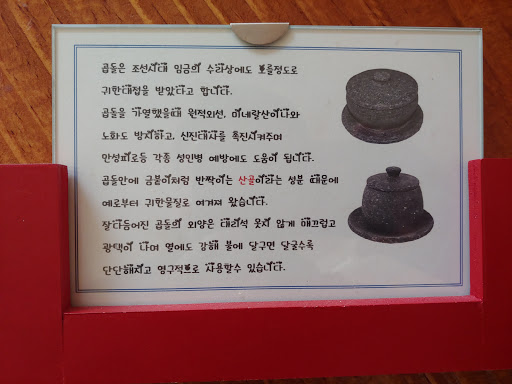 곱돌은 조선시대 임금의 수라상에도 오를정도로
귀한대접을 받았다고 합니다.
곱돌을 가열했을때 원적외선, 미네랄산이나와
노화도 방지하고, 신진대사를 촉진시켜주며
만성피로등 각종 성인병 예방에도 도움이 됩니다.
곱돌안에 금붙이처럼 반짝이는 산골이라는 성분 때문에
예로부터 귀한물질로 여겨져 왔습니다.
잘다듬어진 곱돌의 외양은 대리석 못지 않게 매끄럽고
광택이 나며 열에도 강해 불에 달구면 달굴수록
단단해지고 영구적으로 사용할수 있습니다.